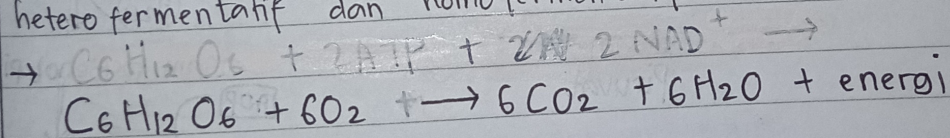 hetero fermentatif dan
→ C6H12O6 + 2ATP + 2 NAD+ →
C6H12O6 + 6O2 → 6CO2 + 6H2O + energi